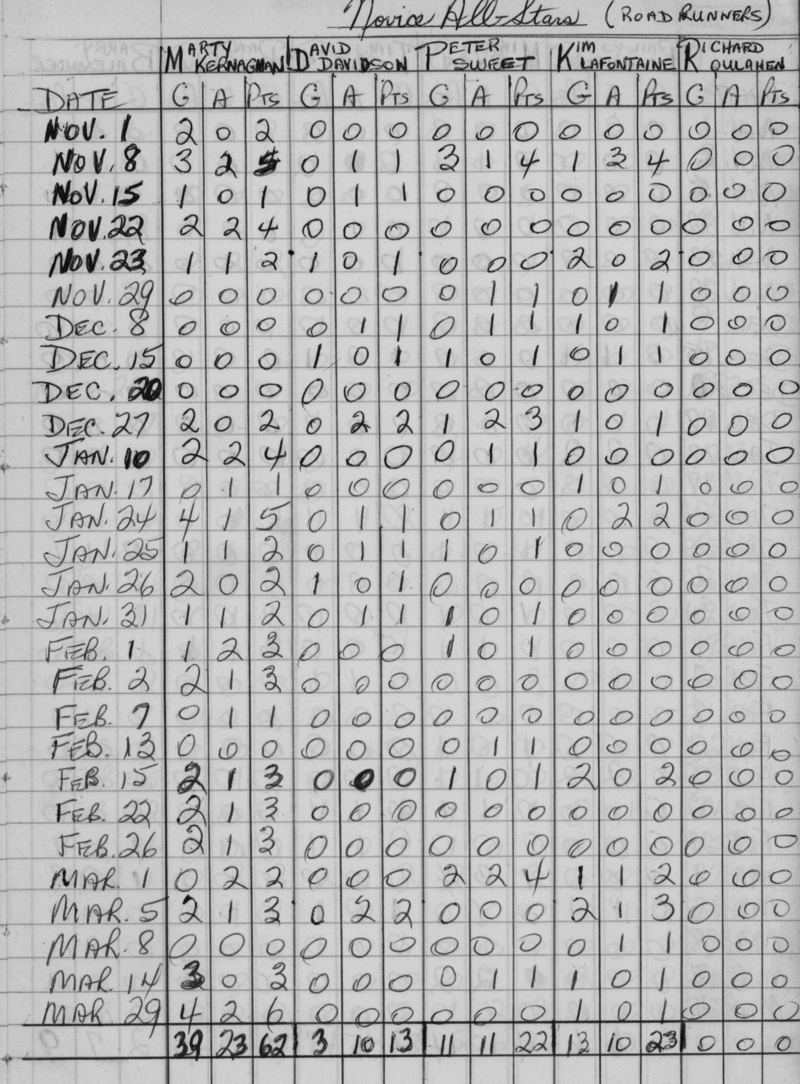 Novice All-Stars (ROAD RUNNERS)
MARTY KERNAGHAN DAVID DAVIDSON PETER SWEET KIM LAFONTAINE RICHARD OULAHEN
DATE G A Pts G A Pts G A Pts G A Pts G A Pts
NOV. 1 2 0 2 0 0 0 0 0 0 0 0 0 0 0 0
NOV. 8 3 2 5 0 1 1 3 1 4 1 3 4 0 0 0
NOV. 15 1 0 1 0 1 1 0 0 0 0 0 0 0 0 0
NOV. 22 2 2 4 0 0 0 0 0 0 0 0 0 0 0 0
NOV. 23 1 1 2 1 0 1 0 0 0 2 0 2 0 0 0
NOV. 29 0 0 0 0 0 0 0 1 1 0 1 1 0 0 0
DEC. 8 0 0 0 0 1 1 0 1 1 1 0 1 0 0 0
DEC. 15 0 0 0 1 0 1 1 0 1 0 1 1 0 0 0
DEC. 20 0 0 0 0 0 0 0 0 0 0 0 0 0 0 0
DEC. 27 2 0 2 0 2 2 1 2 3 1 0 1 0 0 0
JAN. 10 2 2 4 0 0 0 0 1 1 0 0 0 0 0 0
JAN. 17 0 1 1 0 0 0 0 0 0 1 0 1 0 0 0
JAN. 24 4 1 5 0 1 1 0 1 1 0 2 2 0 0 0
JAN. 25 1 1 2 0 1 1 1 0 1 0 0 0 0 0 0
JAN. 26 2 0 2 1 0 1 0 0 0 0 0 0 0 0 0
JAN. 31 1 1 2 0 1 1 1 0 1 0 0 0 0 0 0
FEB. 1 1 2 3 0 0 0 1 0 1 0 0 0 0 0 0
FEB. 2 2 1 3 0 0 0 0 0 0 0 0 0 0 0 0
FEB. 7 0 1 1 0 0 0 0 0 0 0 0 0 0 0 0
FEB. 13 0 0 0 0 0 0 0 1 1 0 0 0 0 0 0
FEB. 15 2 1 3 0 0 0 1 0 1 2 0 2 0 0 0
FEB. 22 2 1 3 0 0 0 0 0 0 0 0 0 0 0 0
FEB. 26 2 1 3 0 0 0 0 0 0 0 0 0 0 0 0
MAR. 1 0 2 2 0 0 0 2 2 4 1 1 2 0 0 0
MAR. 5 2 1 3 0 2 2 0 0 0 2 1 3 0 0 0
MAR. 8 0 0 0 0 0 0 0 0 0 0 1 1 0 0 0
MAR. 14 3 0 3 0 0 0 0 1 1 1 0 1 0 0 0
MAR. 29 4 2 6 0 0 0 0 0 0 1 0 1 0 0 0
39 23 62 3 10 13 11 11 22 13 10 23 0 0 0